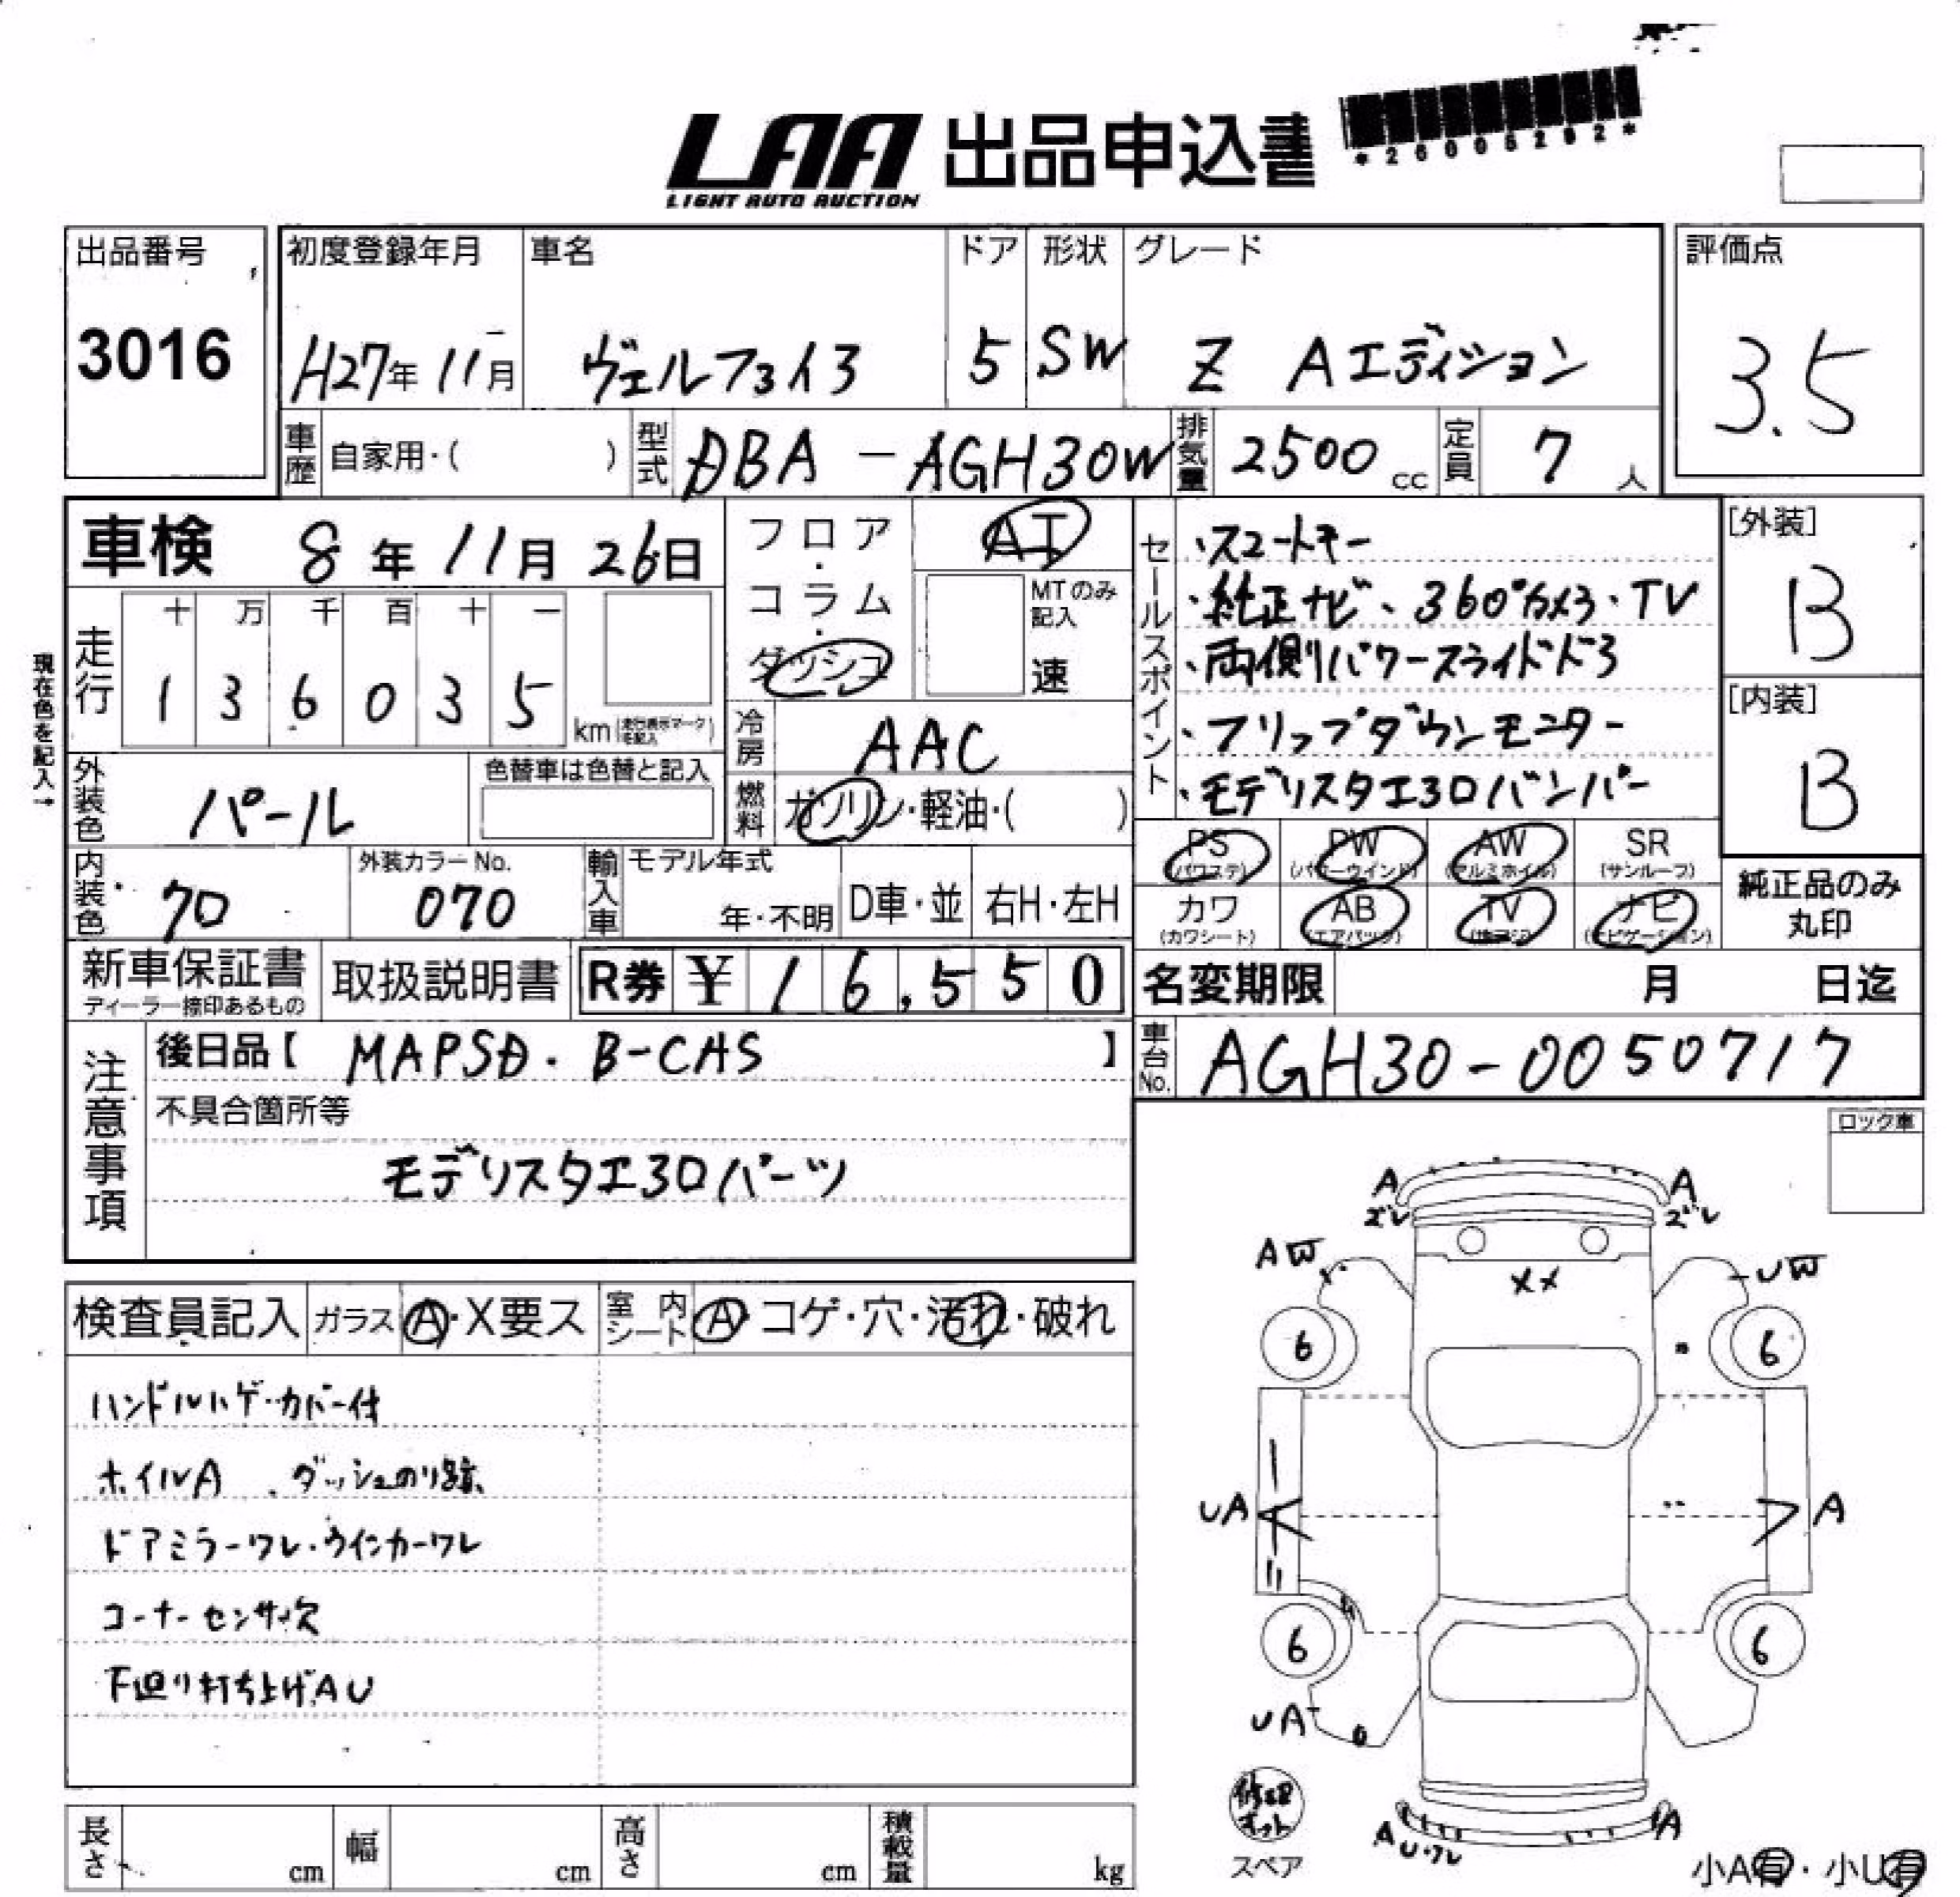 LAA 出品申込書
LIGHT AUTO AUCTION
*26005262*
出品番号 3016
初度登録年月 H27年11月
車名 ヴェルファイヤ
ドア 5
形状 SW
グレード Z Aエディション
評価点 3.5
車歴 自家用・( )
型式 DBA-AGH30W
排気量 2500cc
定員 7人
車検 8年11月26日
フロア・コラム・ダッシュ
AT
MTのみ記入 速
走行 十万千百十一
136035 km(走行表示マークを記入)
現在色を記入→
冷房 AAC
燃料 ガソリン・軽油・( )
外装色 パール
色替車は色替と記入
内装色 70
外装カラーNo. 070
輸入車 モデル年式 年・不明 D車・並 右H・左H
セールスポイント
・スマートキー
・純正ナビ、360°カメラ・TV
・両側パワースライドドア
・フリップダウンモニター
・モデリスタエアロバンパー
[外装] B
[内装] B
PS (パワステ) PW (パワーウインド) AW (アルミホイル) SR (サンルーフ)
カワ (カワシート) AB (エアバック) TV ナビ (ナビゲーション)
純正品のみ丸印
新車保証書 ディーラー捺印あるもの
取扱説明書
R券 ¥16,550
名変期限 月 日迄
注意事項
後日品【 MAPSD・B-CAS 】
車台No. AGH30-0050717
不具合箇所等
モデリスタエアロパーツ
ロック車
検査員記入 ガラス A・X要ス
室内シート A・コゲ・穴・汚れ・破れ
ハンドルハゲ・カバー付
ホイルA、ダッシュのり跡
ドアミラーワレ・ウインカーワレ
コーナーセンサ欠
下廻り打ち上げAU
A A
ズレ ズレ
AW XX UW
6 6
UA A
6 6
UA
修理キット
スペア
AU・ワレ A
小A有・小U有
長さ cm 幅 cm 高さ cm 積載量 kg